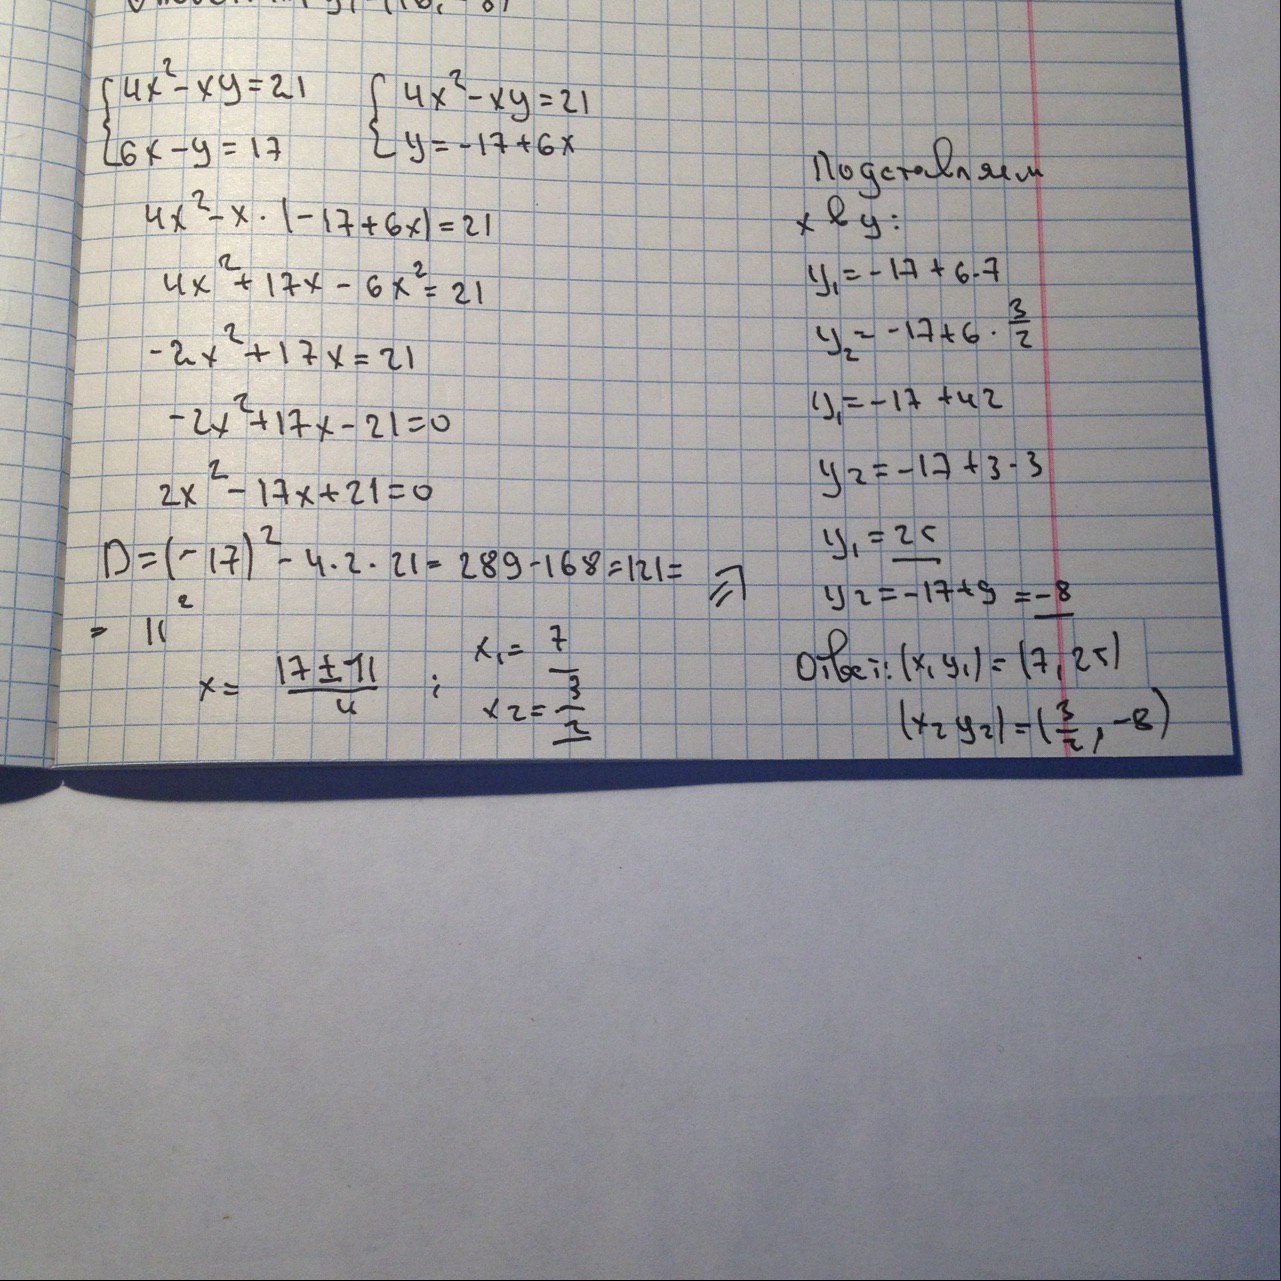 {4x²-xy=21
{6x-y=17
{4x²-xy=21
{y=-17+6x
4x²-x·(-17+6x)=21
4x²+17x-6x²=21
-2x²+17x=21
-2x²+17x-21=0
2x²-17x+21=0
D=(-17)²-4·2·21=289-168=121=
= 11²
x= (17±11)/4 ;
x₁= 7
x₂= 3/2
⇒
Подставляем
x в y:
y₁=-17+6·7
y₂=-17+6·3/2
y₁=-17+42
y₂=-17+3·3
y₁=25
y₂=-17+9=-8
Ответ: (x₁y₁)=(7,25)
(x₂y₂)=(3/2,-8)